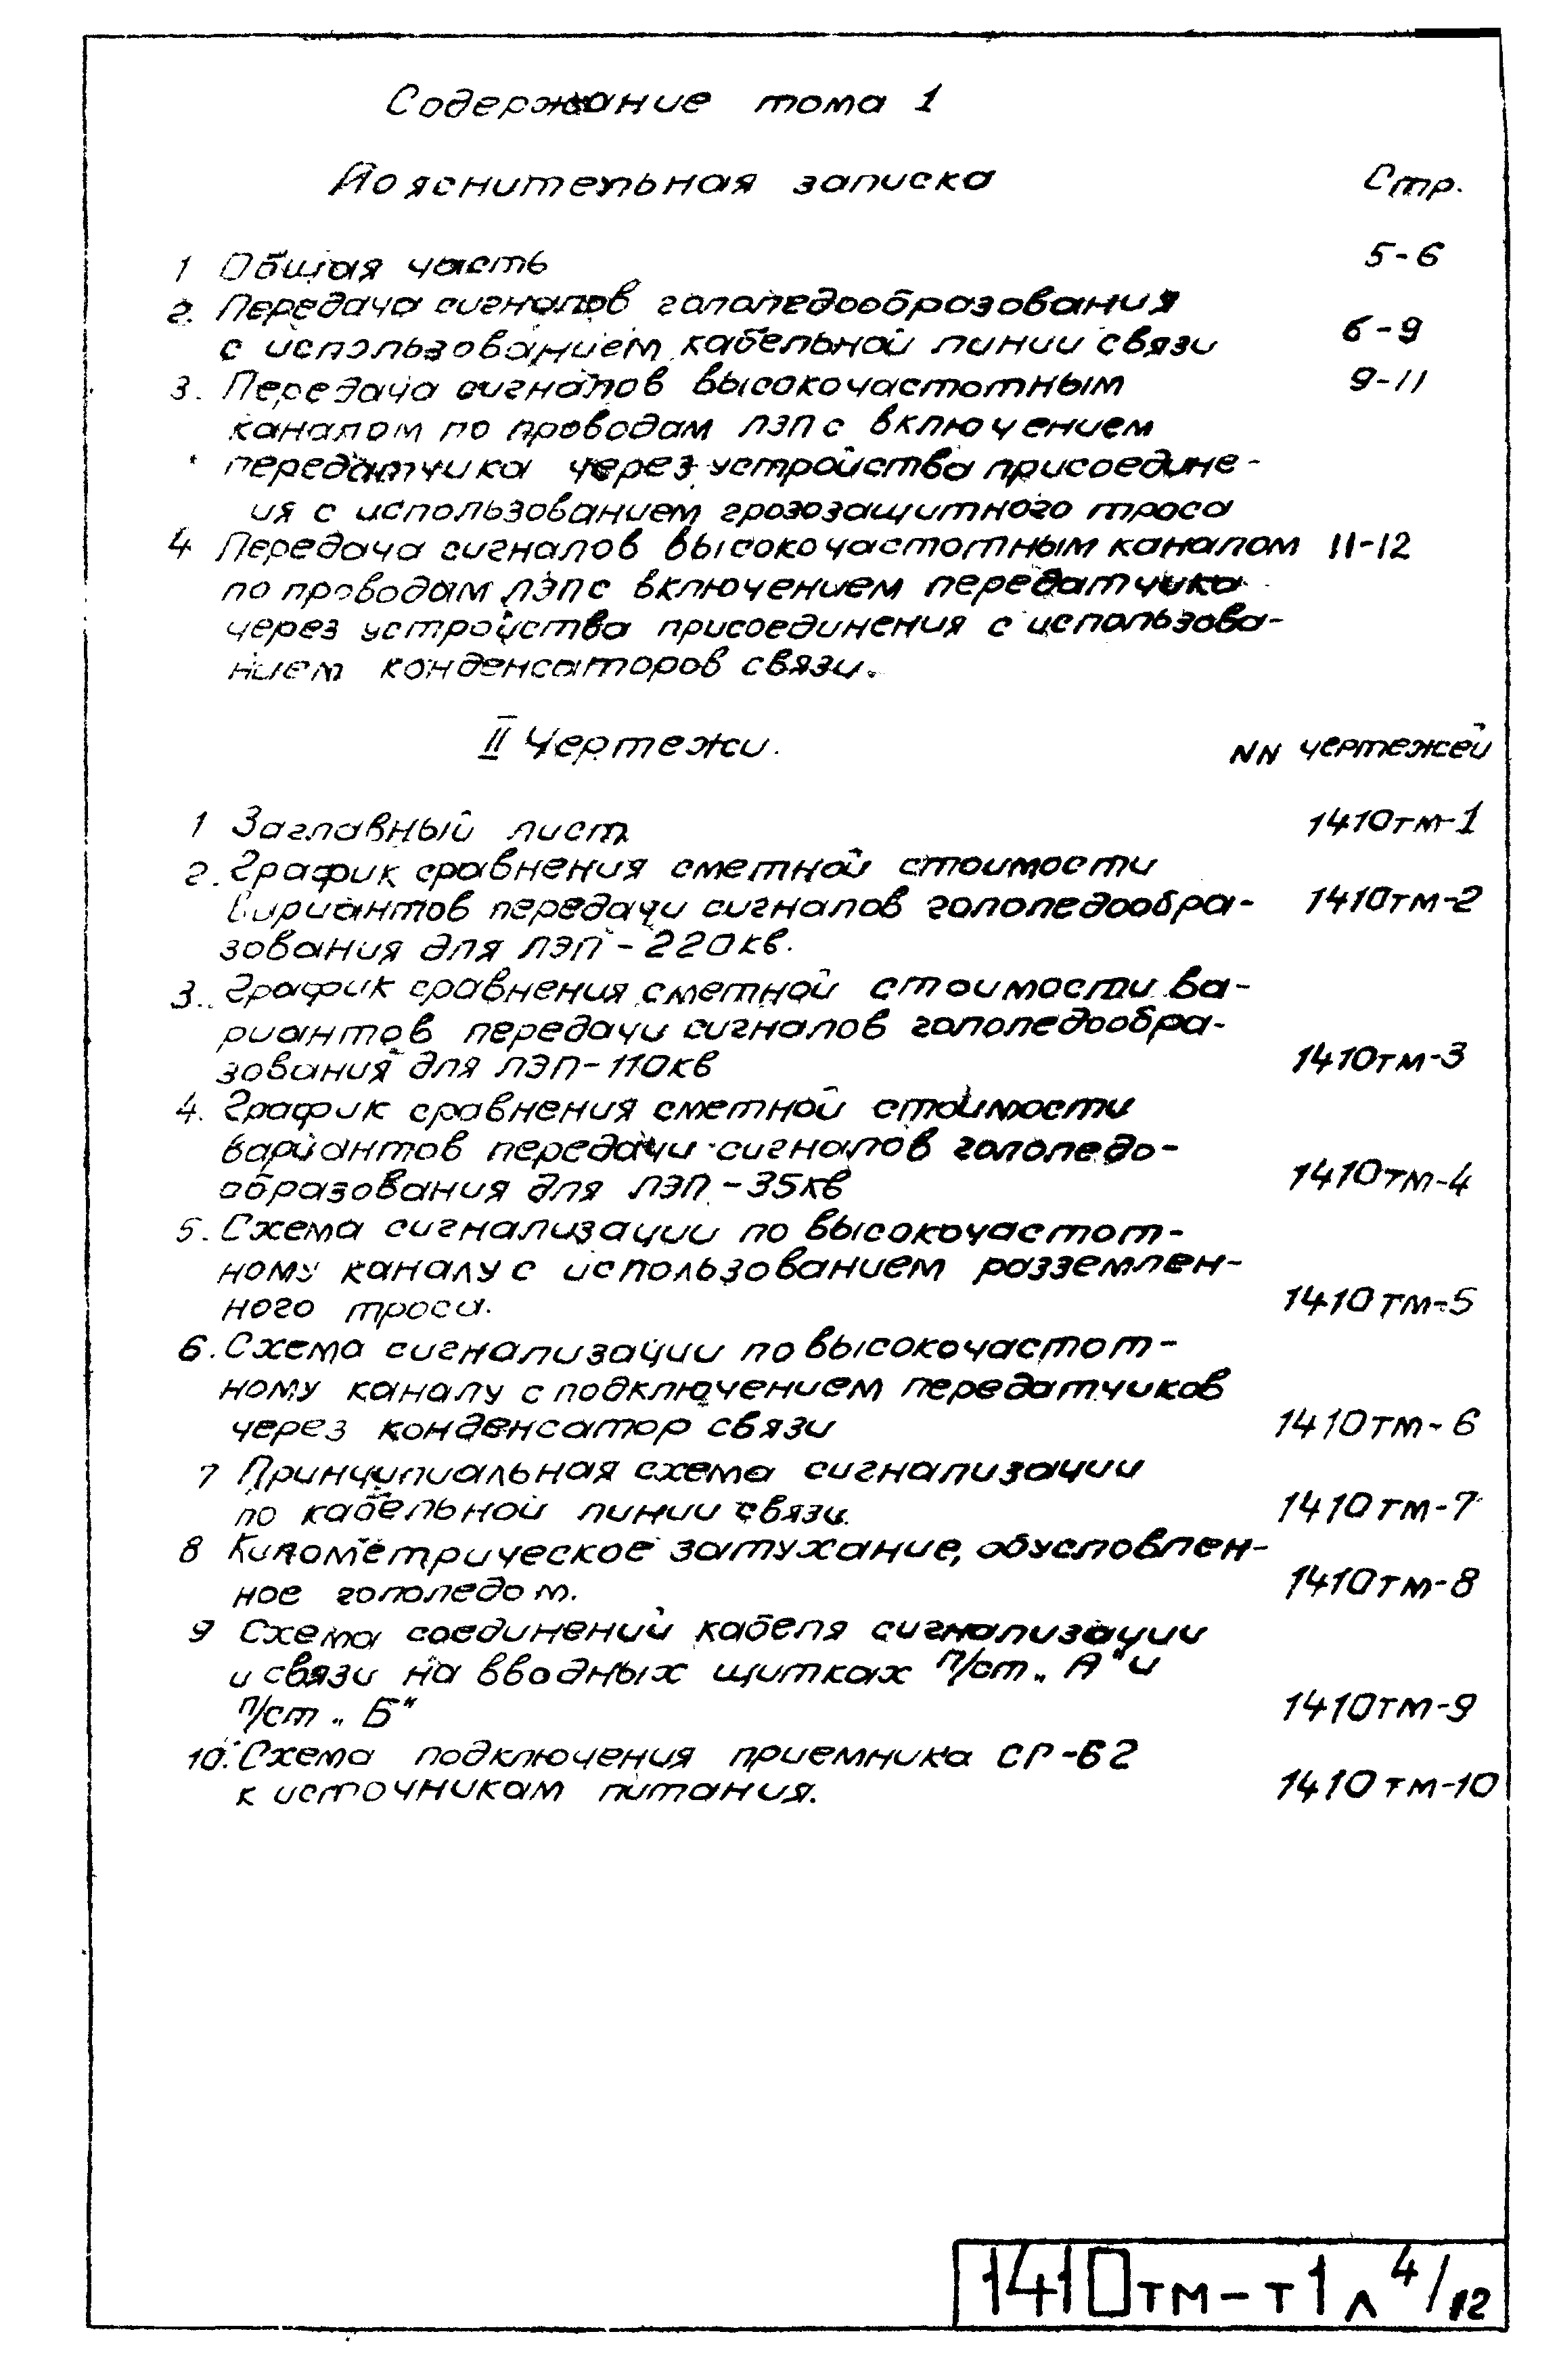 Содержание тома 1
Пояснительная записка Стр.
1 Общая часть 5-6
2. Передача сигналов гололедообразования
с использованием кабельной линии связи 6-9
3. Передача сигналов высокочастотным 9-11
каналом по проводам ЛЭП с включением
передатчика через устройства присоедине-
ия с использованием грозозащитного троса
4 Передача сигналов высокочастотным каналом 11-12
по проводам ЛЭП с включением передатчика
через устройства присоединения с использова-
нием конденсаторов связи.
II Чертежи. NN чертежей
1 Заглавный лист 1410тм-1
2. График сравнения сметной стоимости
вариантов передачи сигналов гололедообра- 1410тм-2
зования для ЛЭП-220кв.
3. График сравнения сметной стоимости ва-
риантов передачи сигналов гололедообра-
зования для ЛЭП-110кв 1410тм-3
4. График сравнения сметной стоимости
вариантов передачи сигналов гололедо-
образования для ЛЭП-35кв 1410тм-4
5. Схема сигнализации по высокочастот-
ному каналу с использованием разземлен-
ного троса. 1410тм-5
6. Схема сигнализации по высокочастот-
ному каналу с подключением передатчиков
через конденсатор связи 1410тм-6
7 Принципиальная схема сигнализации
по кабельной линии связи. 1410тм-7
8 Километрическое затухание, обусловлен-
ное гололедом. 1410тм-8
9 Схема соединений кабеля сигнализации
и связи на вводных щитках п/ст „А" и
п/ст „Б" 1410тм-9
10. Схема подключения приемника СГ-62
к источникам питания. 1410тм-10
1410тм-т1 л 4/12